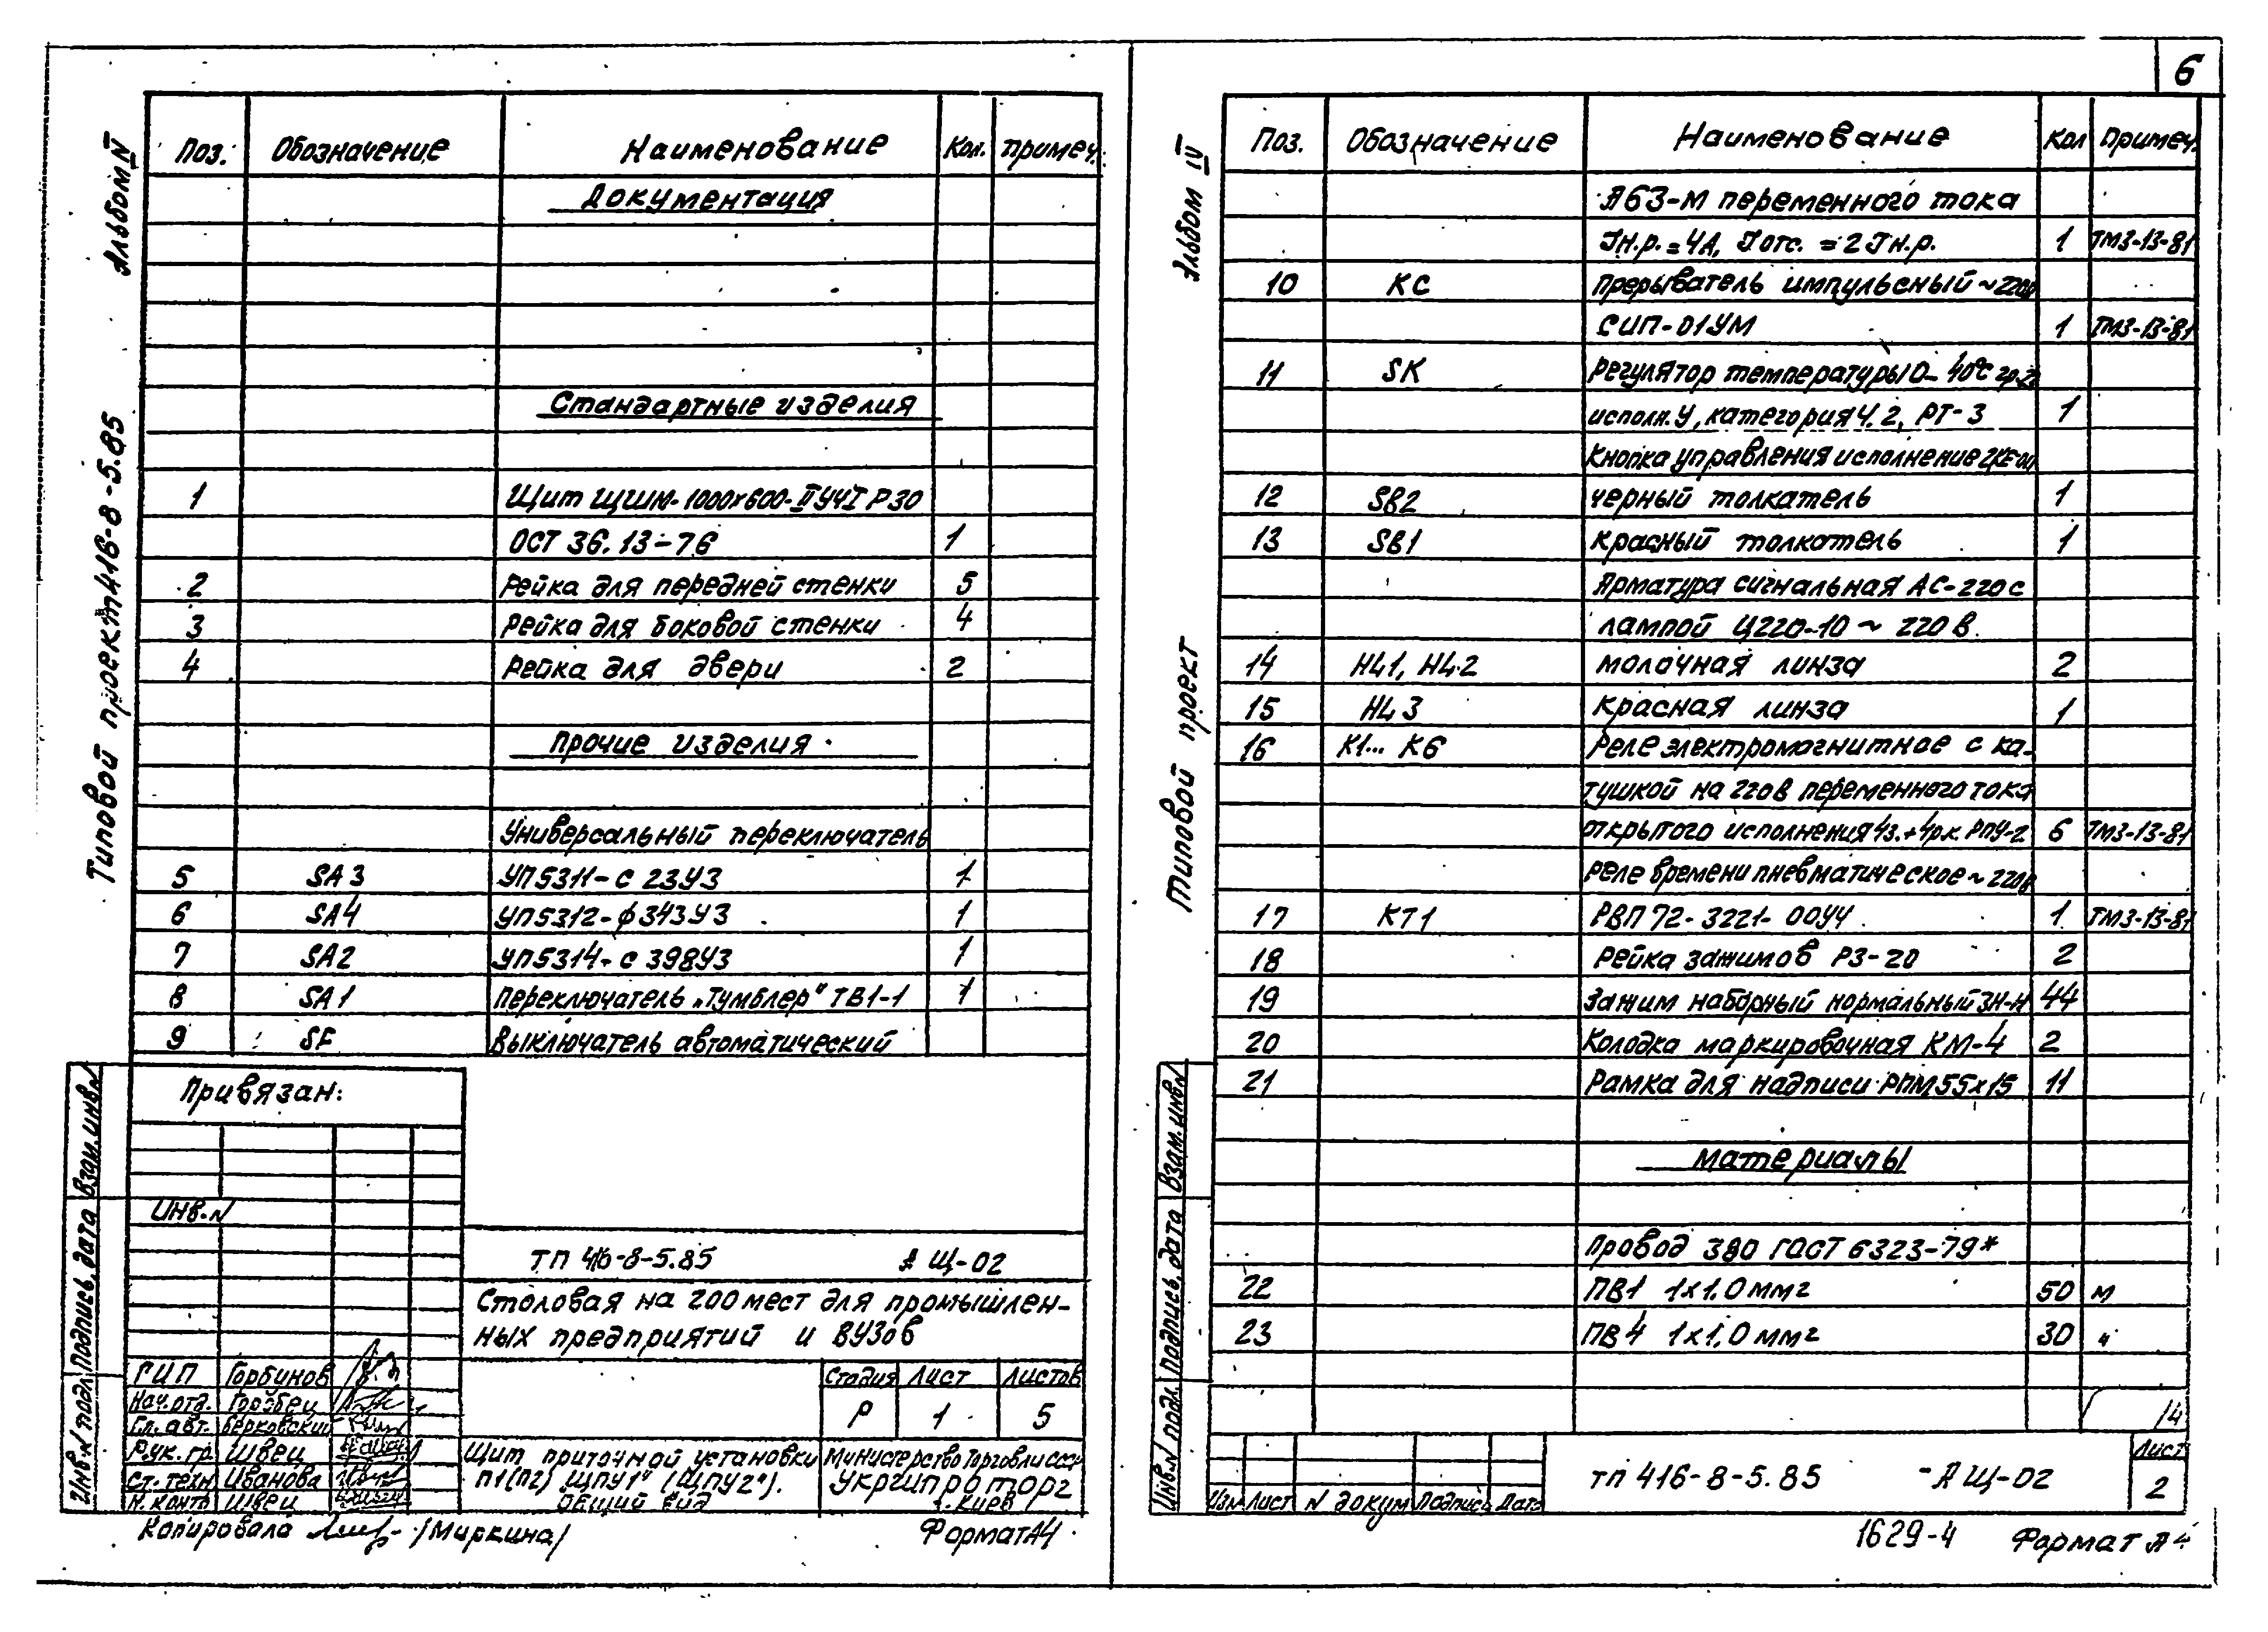 6
Альбом IV
Типовой проект 416-8-5.85
Поз. Обозначение Наименование Кол. Примеч.
Документация
Стандартные изделия
1 Щит ЩШМ-1000х600-II УЧI Р30
ОСТ 36.13-76 1
2 Рейка для передней стенки 5
3 Рейка для боковой стенки 4
4 Рейка для двери 2
Прочие изделия
Универсальный переключатель
5 SA3 УП5311-С23У3 1
6 SA4 УП5312-Ф343У3 1
7 SA2 УП5314-С398У3 1
8 SA1 Переключатель „Тумблер" ТВ1-1 1
9 SF Выключатель автоматический
Привязан:
Инв.N
ТП 416-8-5.85 АЩ-02
Столовая на 200 мест для промышлен-
ных предприятий и ВУЗов
ГИП Горбунов
Нач.отд. Горобец
Гл. авт. Берковский
Рук. гр. Швец
Ст. техн Иванова
Н. контр Швец
Стадия Лист Листов
Р 1 5
Щит приточной установки
П1(П2) „ЩПУ1" („ЩПУ2").
Общий вид
Министерство Торговли СССР
Укргипроторг
г. Киев
Инв.N подл. Подпись, дата Взам.инв.N
Копировала /Миркина/ Формат А4
Альбом IV
Типовой проект
Поз. Обозначение Наименование Кол Примеч.
А63-М переменного тока
Iн.р.=4А, Iотс.=2Iн.р. 1 ТМ3-13-81
10 КС Прерыватель импульсный ~220В
СИП-01УМ 1 ТМ3-13-81
11 SK Регулятор температуры 0-40°С
исполн. У, категория 4.2, РТ-3 1
Кнопка управления исполнение
12 SB2 черный толкатель 1
13 SB1 красный толкатель 1
Арматура сигнальная АС-220 с
лампой Ц220-10 ~ 220 В.
14 HL1, HL2 молочная линза 2
15 HL3 красная линза 1
16 К1... К6 Реле электромагнитное с ка-
тушкой на 220В переменного тока
открытого исполнения 4з.+4р.к. РПУ-2 6 ТМ3-13-81
Реле времени пневматическое ~220В
17 КТ1 РВП72-3221-00У4 1 ТМ3-13-81
18 Рейка зажимов РЗ-20 2
19 Зажим наборный нормальный ЗН-Н 44
20 Колодка маркировочная КМ-4 2
21 Рамка для надписи РПМ55х15 11
Материалы
Провод 380 ГОСТ 6323-79*
22 ПВ1 1х1.0 мм2 50 м
23 ПВ4 1х1.0 мм2 30 "
14
Изм Лист N докум Подпись Дата
ТП 416-8-5.85 -АЩ-02
Лист
2
Инв.N подл. Подпись, дата Взам.инв.N
1629-4 Формат А4